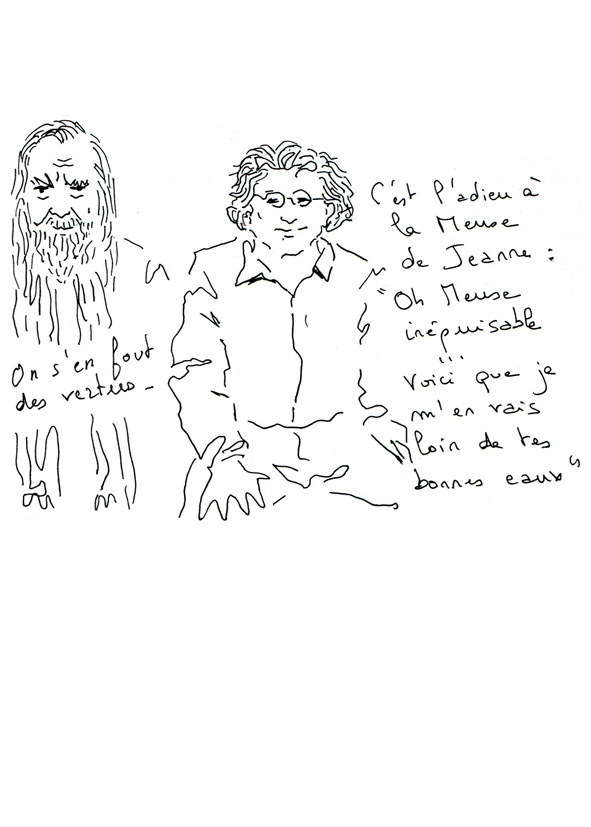 On s'en fout
des vertus -
C'est l'adieu à
la Meuse
de Jeanne :
"Oh Meuse
inépuisable
...
voici que je
m'en vais
loin de tes
bonnes eaux"